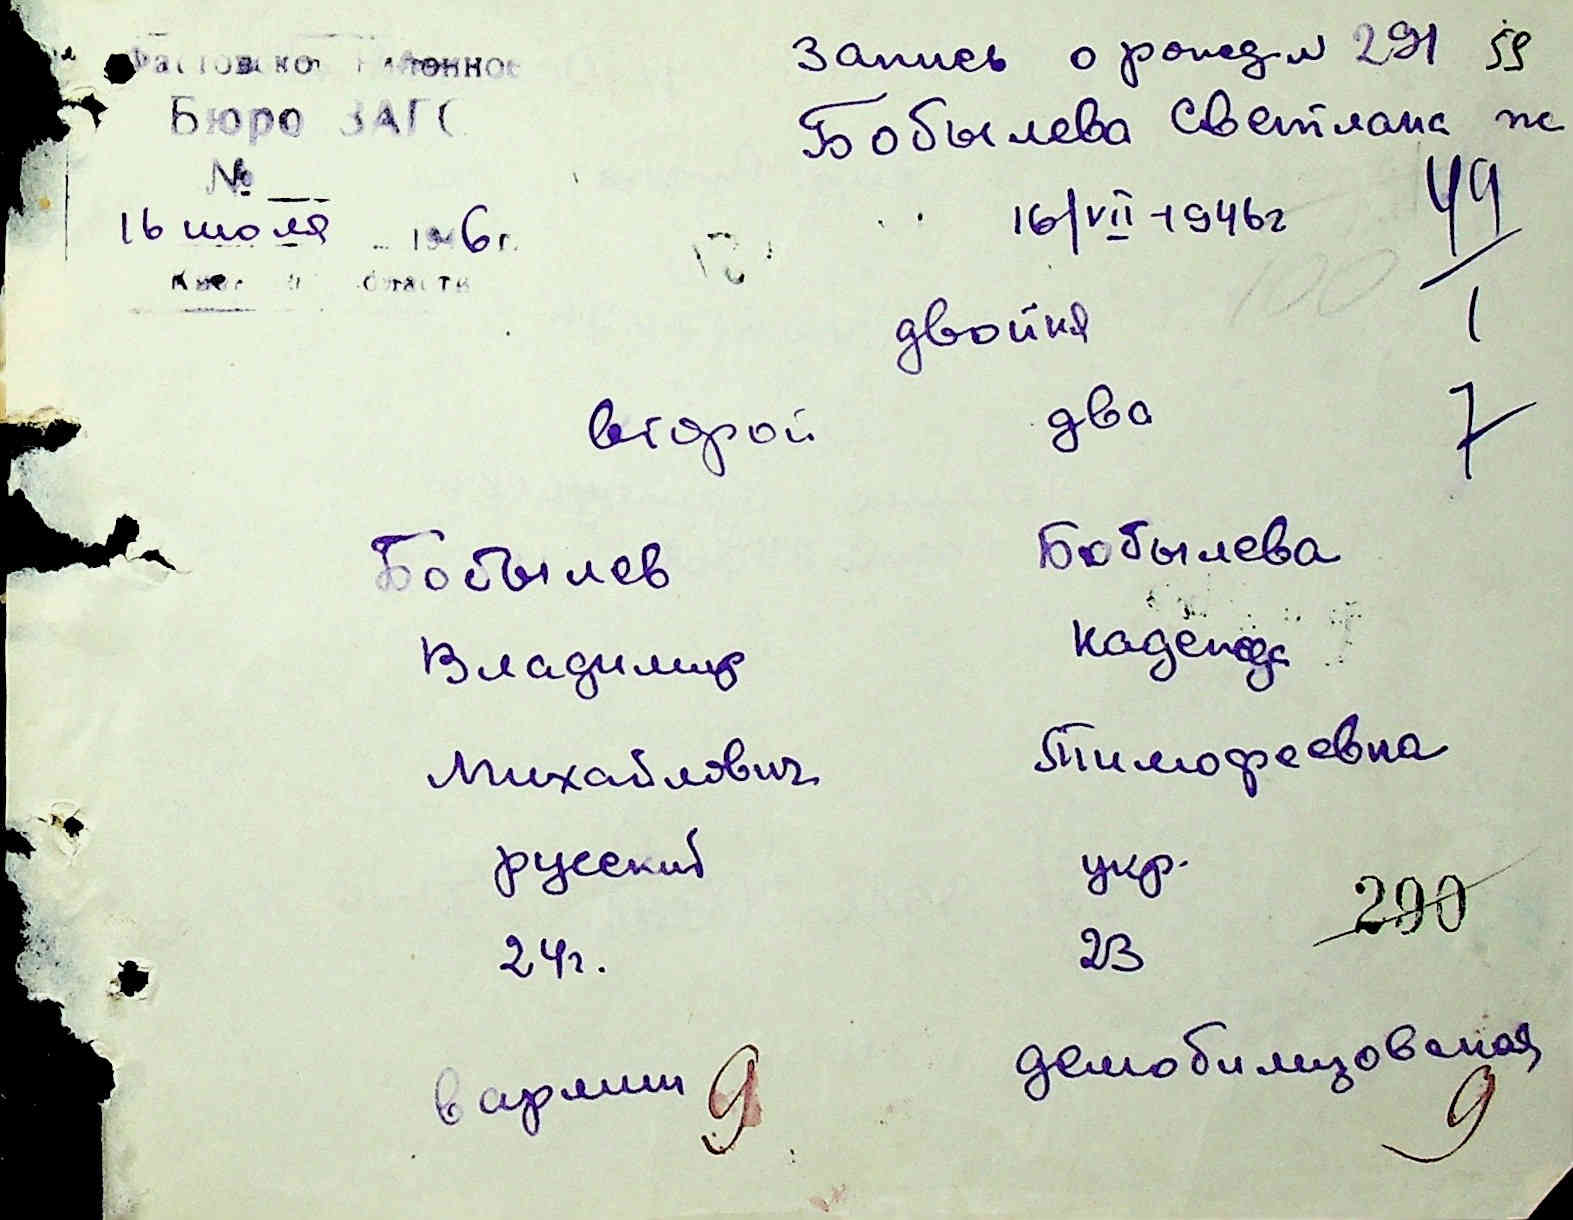 Фастовское районное
Запись о рожд N 291 59
Бюро ЗАГС
Бобылева Светлана ж
№
16 июля 1946 г.
16/VII-1946г
49/1
области
100
двойня
второй два
7
Бобылев Бобылева
Владимир Надежда
Михайлович Тимофеевна
русский укр.
290
24г. 23
в армии 9 демобилизованая
9